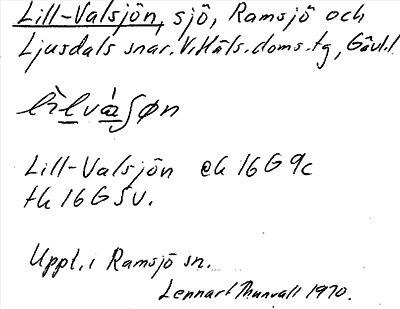 Lill-Valsjön, sjö, Ramsjö och
Ljusdals snar. V. Häls. doms. tg, Gävl. l
Lill-Valsjön ek 16 G 9c
tk 16 G SV.
Uppl. i Ramsjö sn.
Lennart Thunvall 1970.